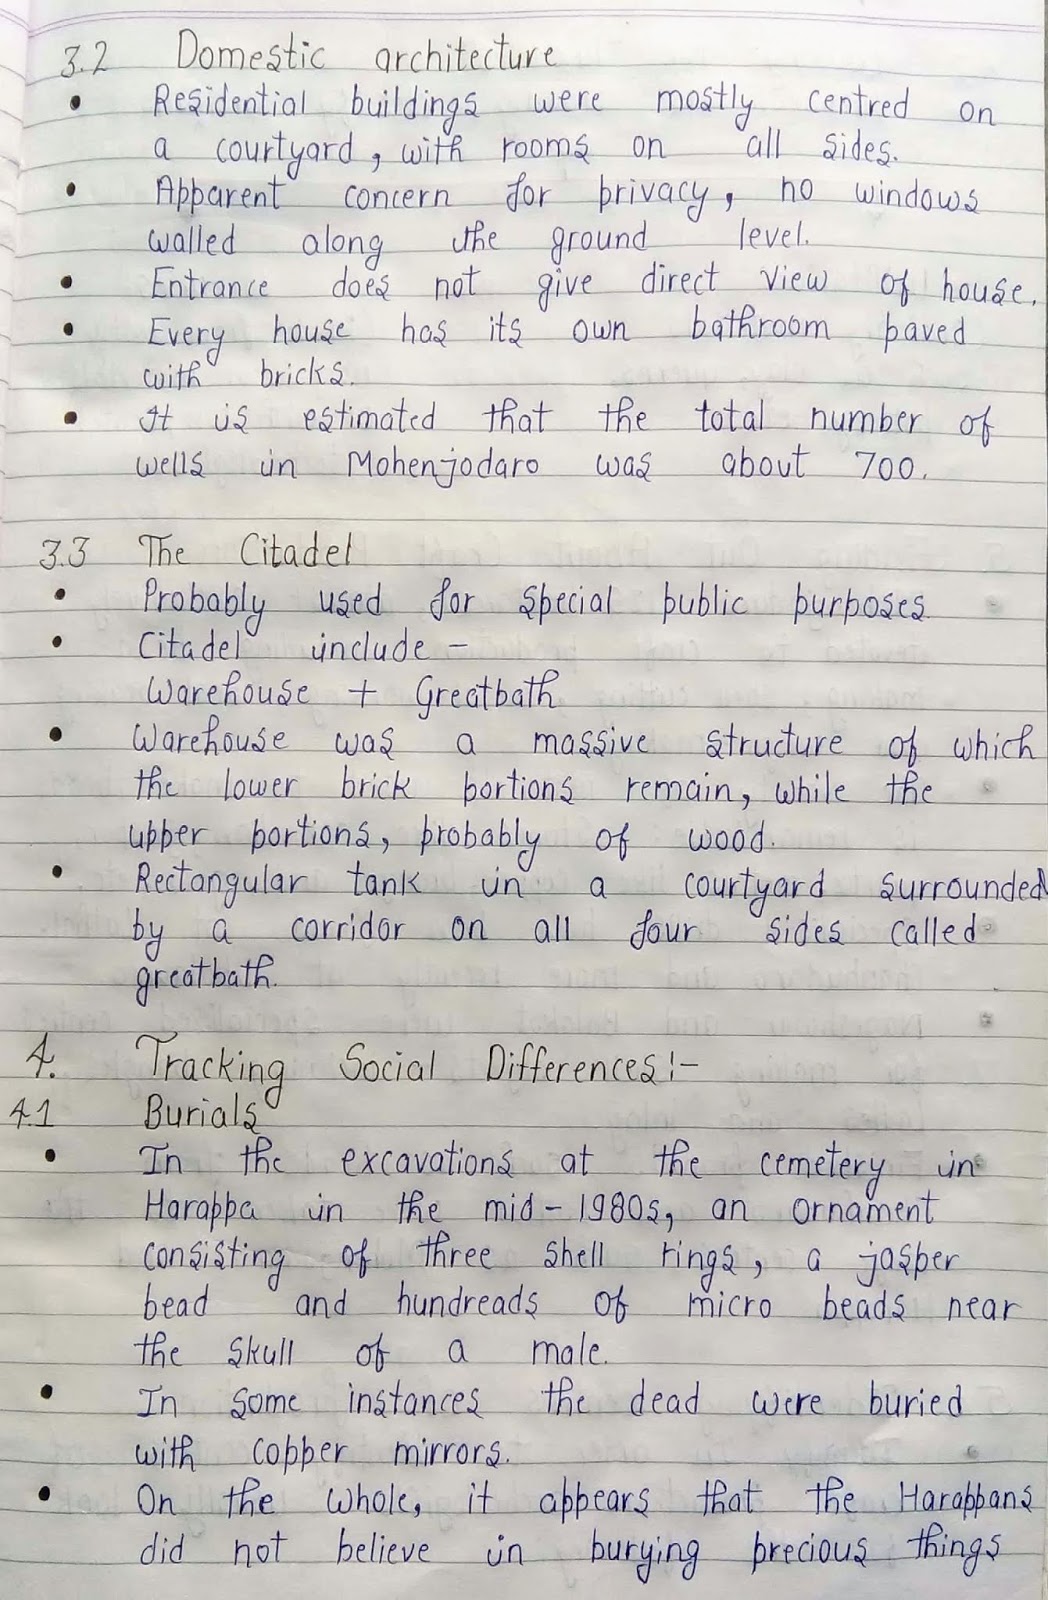 3.2 Domestic architecture
• Residential buildings were mostly centred on
a courtyard, with rooms on all sides.
• Apparent concern for privacy, no windows
walled along the ground level.
• Entrance does not give direct view of house.
• Every house has its own bathroom paved
with bricks.
• It is estimated that the total number of
wells in Mohenjodaro was about 700.
3.3 The Citadel
• Probably used for special public purposes
• Citadel include -
Warehouse + Greatbath
• Warehouse was a massive structure of which
the lower brick portions remain, while the
upper portions, probably of wood.
• Rectangular tank in a courtyard surrounded
by a corridor on all four sides called
greatbath.
4. Tracking Social Differences:-
4.1 Burials
• In the excavations at the cemetery in
Harappa in the mid-1980s, an ornament
consisting of three shell rings, a jasper
bead and hundreads of micro beads near
the skull of a male.
• In some instances the dead were buried
with copper mirrors.
• On the whole, it appears that the Harappans
did not believe in burying precious things